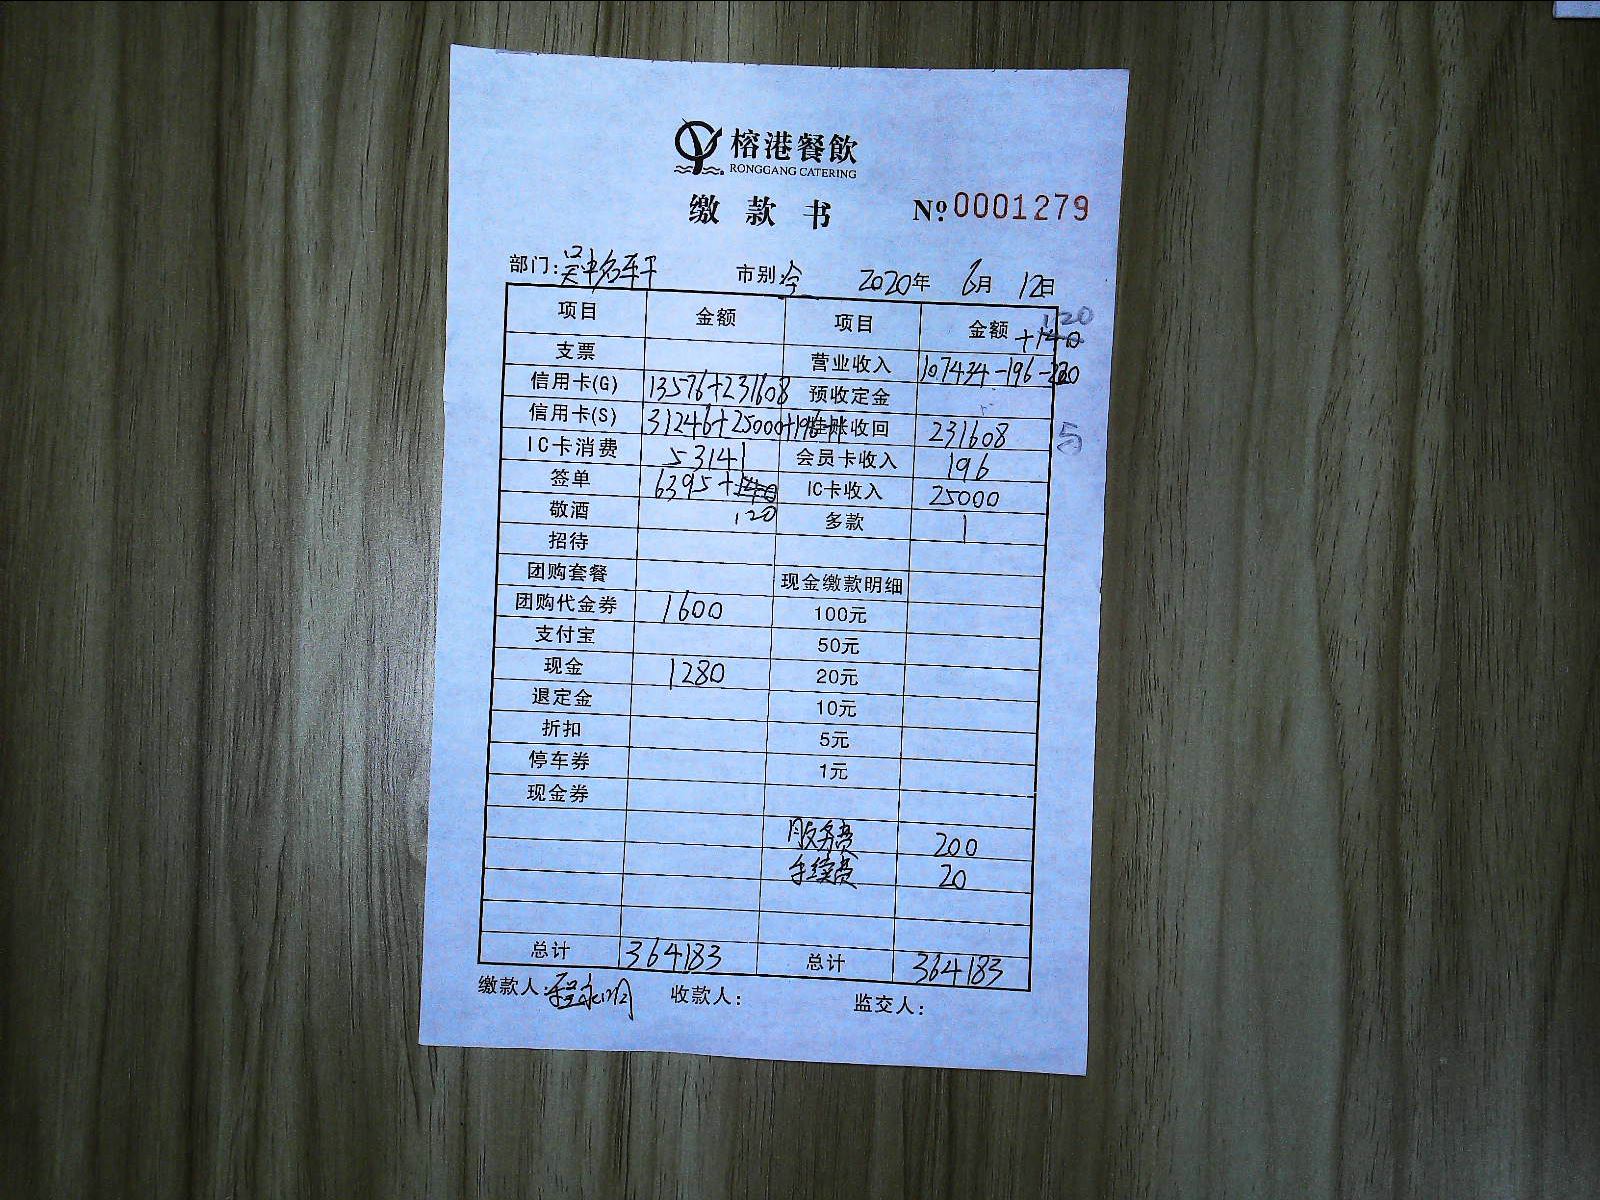 榕港餐飲
RONGGANG CATERING
缴款书 Nº 0001279
部门: 市别: 2020年 6月 12日
项目 金额 项目 金额 120
+140
支票 营业收入 107434-196-220
信用卡(G) 13576+231608 预收定金
信用卡(S) 31246+25000+196+1 挂账收回 231608 5
IC卡消费 53141 会员卡收入 196
签单 6395+140 IC卡收入 25000
敬酒 120 多款 1
招待
团购套餐 现金缴款明细
团购代金券 1600 100元
支付宝 50元
现金 1280 20元
退定金 10元
折扣 5元
停车券 1元
现金券
服务费 200
手续费 20
总计 364183 总计 364183
缴款人: 收款人: 监交人: